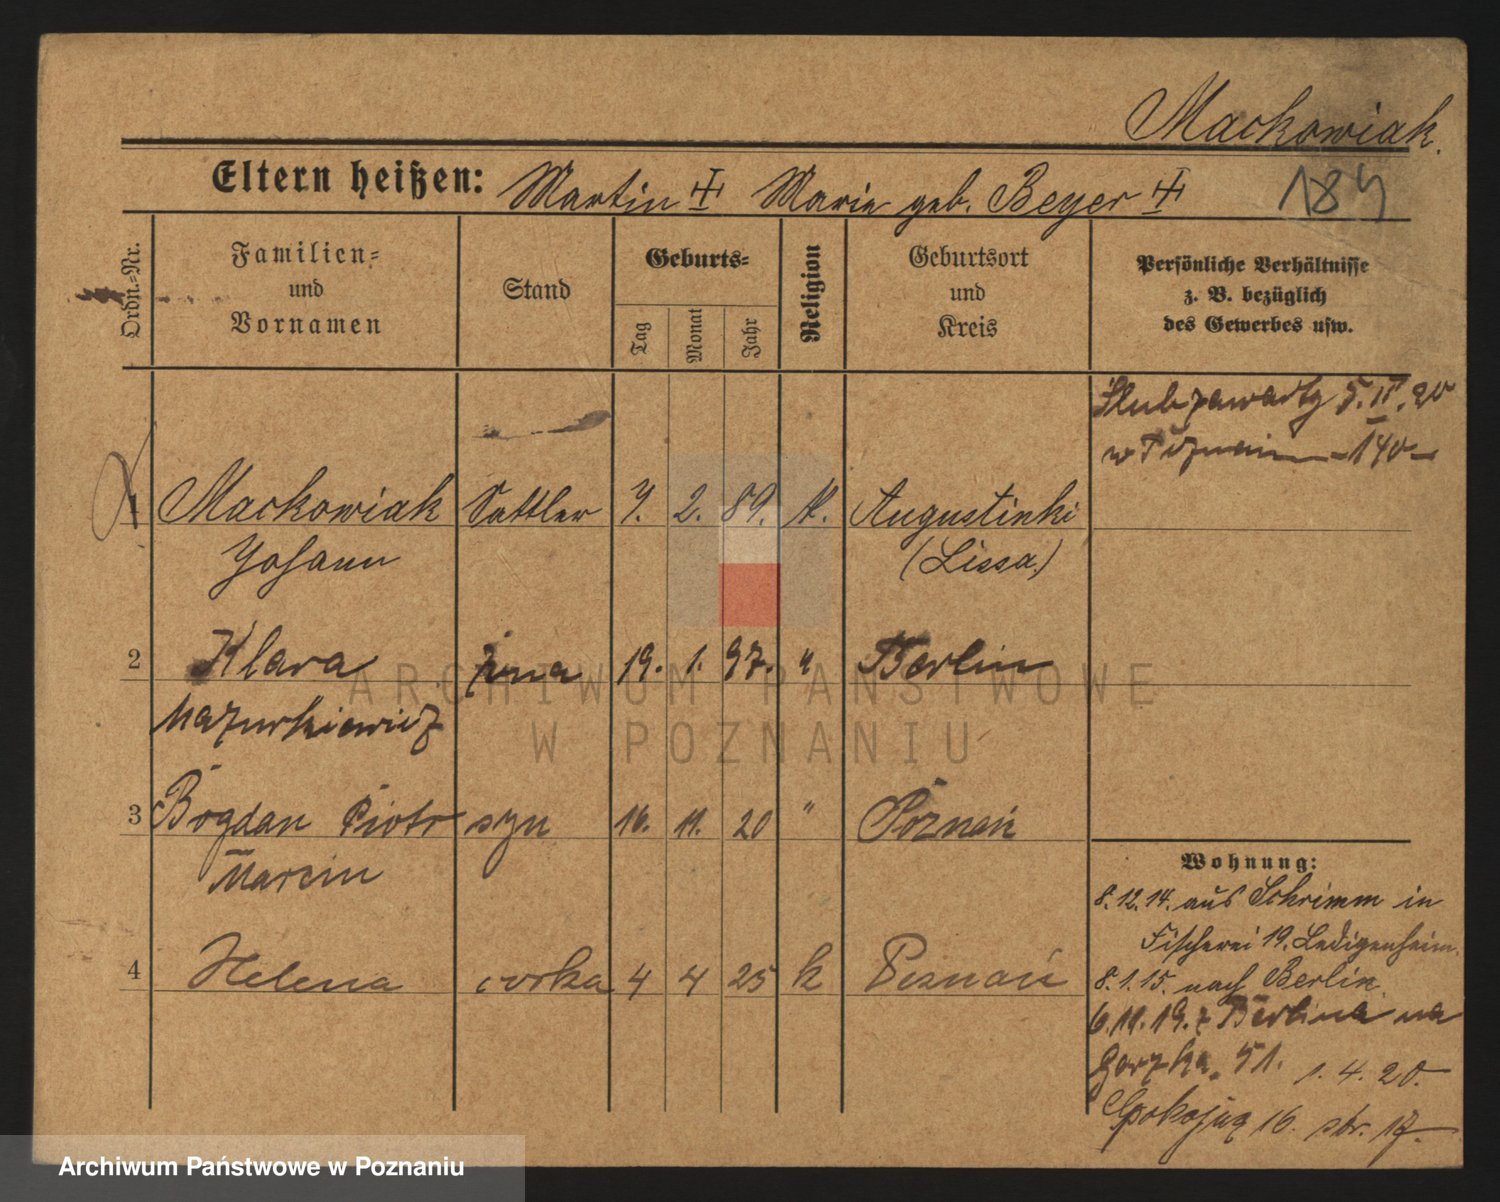 Mackowiak.
Eltern heißen: Martin Marie geb. Beyer
184
Ordn.-Nr.
Familien-
und
Vornamen
Stand
Geburts-
Tag
Monat
Jahr
Religion
Geburtsort
und
Kreis
Persönliche Verhältnisse
z. B. bezüglich
des Gewerbes usw.
Ślub zawarty 5.II.20
w Poznaniu - 140 -
1 Mackowiak Sattler 7. 2. 89. k. Augustinki
Johann (Lissa.)
2 Klara żona 19. 1. 97. " Berlin
Mazurkiewicz
3 Bogdan Piotr syn 16. 11. 20 " Poznań
Marcin
4 Helena córka 4 4 25 k Poznań
Wohnung:
8.12.14. aus Schrimm in
Fischerei 19. Ledigenheim.
8.1.15. nach Berlin.
6.11.19. z Berlina na
51. 1.4.20.
16. str. 17.
ARCHIWUM PAŃSTWOWE
W POZNANIU
Archiwum Państwowe w Poznaniu